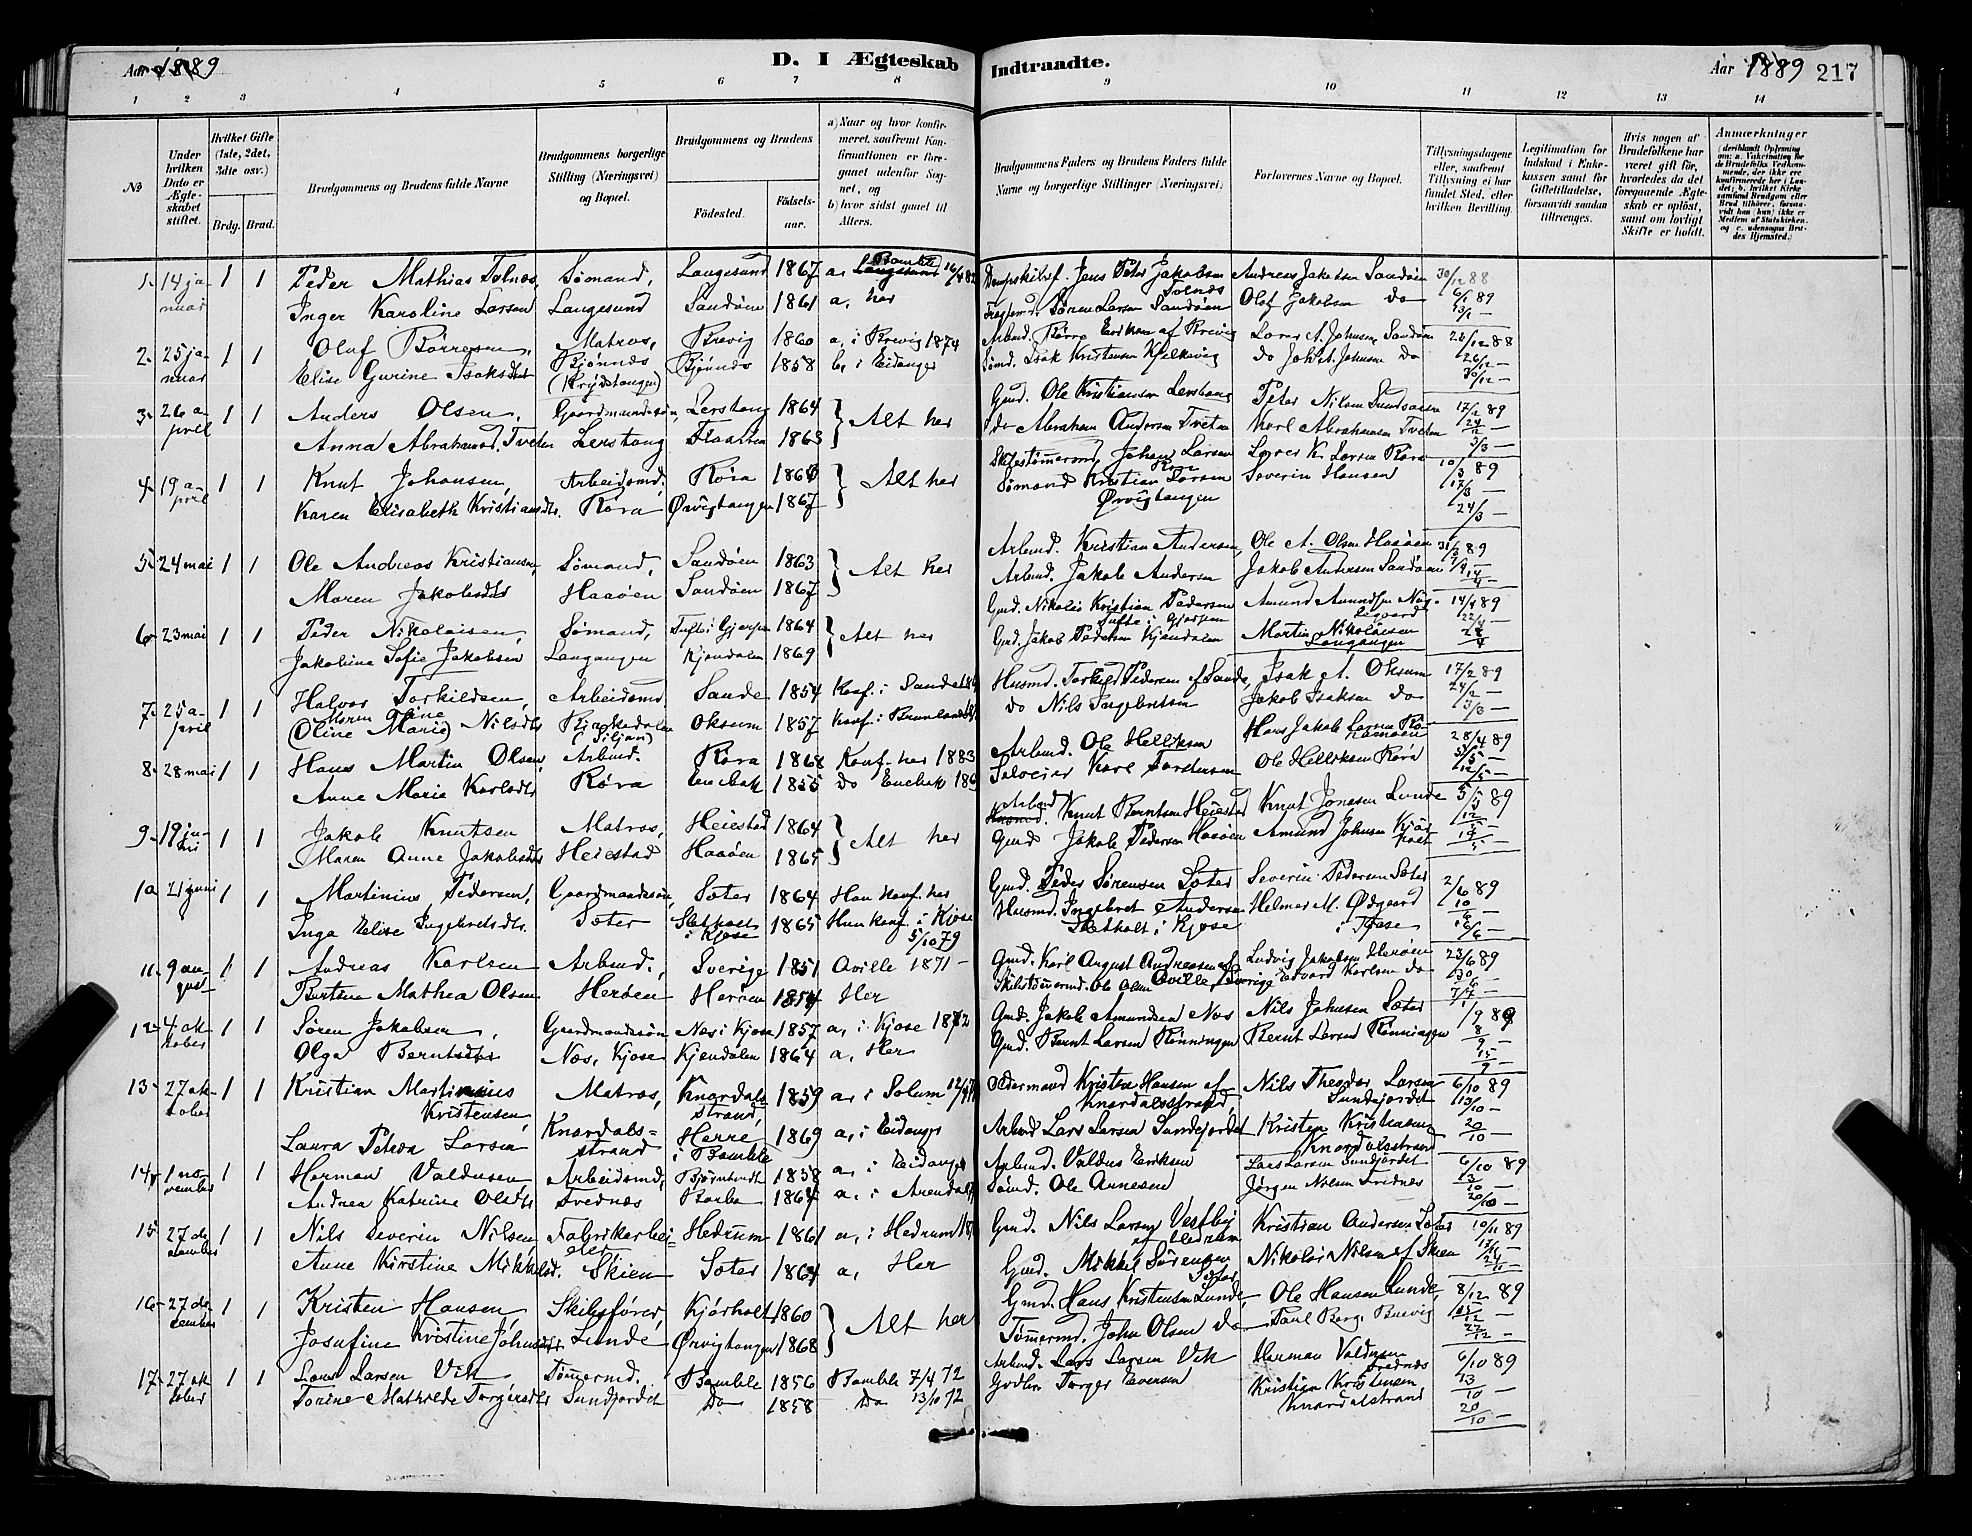 Aar 1889
D. I Ægteskab Indtraadte.
Aar 1889 217
1 2 3 4 5 6 7 8 9 10 11 12 13 14
No
Under hvilken Dato er Ægteskabet stiftet.
Hvilket Gifte (1ste, 2det, 3die osv.)
Brdg. Brud.
Brudgommens og Brudens fulde Navne
Brudgommens borgerlige Stilling (Næringsvei) og Bopæl.
Brudgommens og Brudens
Födested.
Födselsaar.
a) Naar og hvor konfirmeret, saafremt Konfirmationen er foregaaet udenfor Sognet, og
b) hvor sidst gaaet til Alters.
Brudgommens Faders og Brudens Faders fulde Navne og borgerlige Stillinger (Næringsvei)
Forlovernes Navne og Bopæl.
Tillysningsdagene eller, saafremt Tillysning ei har fundet Sted, efter hvilken Bevilling.
Legitimation for Indskud i Enkekassen samt for Giftetilladelse, forsaavidt saadan tiltrænges.
Hvis nogen af Brudefolkene har været gift för, hvorledes da det foregaaende Ægteskab er oplöst, samt om lovligt Skifte er holdt.
Anmærkninger
1. 14 januar 1 1 Peder Mathias Tolnes, Sømand, Langesund 1867 a, Bamble 16/4 82 Dampskibsf. Jens Peter Jakobsen Tolnes Andreas Jakobsen Sandøen 30/12 88
Inger Karoline Larsen Langesund Sandøen 1861 a, her Søren Larsen Sandøen Olaf Jakobsen do 6/1 89 13/1 —
2. 25 januar 1 1 Oluf Børresen, Matros, Brevig 1860 a, i Brevig 1874 Arbmd. Børre Eriksen af Brevig Lars A. Johnsen Sandøen 88
Elise Gurine Isaksdtr Bjønnes Bjønnes 1858 b, i Eidanger Sømd. Isak Kristensen do Joh. A. Johnsen do 26/12 — 30/12 —
3. 26 april 1 1 Anders Olsen, Gaardmandssøn, Lerstang 1864 Alt her Gmd. Ole Kristiansen Lerstang Peter Nilsen 17/2 89
Anna Abrahamsd. Tveten Lerstang 1863 do Abraham Andersen Tveten Karl Abrahamsen Tveten 24/2 — 3/3 —
4. 19 april 1 1 Knut Johansen, Arbeidsmd. Røra 1860 Alt her Skibstømmermd. Johan Larsen Røra Lars K. Larsen Røra 10/3 89
Karen Elisabeth Kristiansdtr. Røra Ørvigtangen 1867 Sømand Kristian Larsen Ørvigtangen Severin Hansen 17/3 — 24/3 —
5. 24 mai 1 1 Ole Andreas Kristiansen, Sømand, Sandøen 1863 Alt her Arbmd. Kristian Andersen, Ole A. Olsen Haaøen 31/3 89
Maren Jakobsdtr Haaøen Sandøen 1867 Arbmd. Jakob Andersen Jakob Andersen Sandøen
6. 23 mai 1 1 Peder Nikolaisen, Sømand, Tufte i Gjerpen 1864 Alt her Gmd. Nikolai Kristian Pedersen Tufte i Gjerpen 14/4 89
Jakobine Sofie Jakobsen Langangen Kjendalen 1869 Gmd. Jakob Pedersen Kjendalen Martin Nikolaisen Langangen
7. 25 april 1 1 Halvor Torkildsen, Arbeidsmd. Sande 1854 Konf. i Sande Husmd. Torkild Pedersen af Sande, Isak A. Oksum 17/2 89
(Oline Marie) Nilsdtr (Siljan) Oksum 1857 Konf. i Brunlanes do Nils Ingebretsen Jakob Isaksen do 24/2 — 3/3 —
8. 28 mai 1 1 Hans Martin Olsen, Arbmd. Røra 1868 Konf. her 1883 Arbmd. Ole Helliksen Hans Jakob Larsen 28/4 89
Anne Marie Karlsdtr Røra Enebak 1855 do Enebak Karl Ole Helliksen Røra 5/5 — 12/5 —
9. 19 juni 1 1 Jakob Knutsen Matros, Heiestad 1864 Alt her Arbmd. Knut Berntsen Heiestad Knut Jonasen Lunde 5/5 89
Maren Anne Jakobsdtr Heiestad Haaøen 1865 Gmd Jakob Pedersen Haaøen Amund Johnsen Kjørholt 12/5 —
10 21 juni 1 1 Martinius Pedersen, Gaardmandssøn, Sæter 1864 Han konf. her Gmd. Peder Sørensen Sæter Severin Pedersen Sæter 2/6 89
Inga Elise Ingebretsdtr. Sæter Sletholt i Kjose 1865 Hun konf. i Kjose 5/10 79 Husmd. Ingebret Andersen Sletholt i Kjose Helmer M. Ødegaard i Kjose 10/6 16/6 —
11. 9 august 1 1 Andreas Karlsen Arbmd., Sverige 1851 Aville 1871 — Gmd. Karl August Andreasen af Aville, Sverige Ludvig Jakobsen Herøen 23/6 89
Bertine Mathea Olsen Herøen Herøen 1854 Her Skibstømmermd. Ole Olsen Edvard Karlsen do 30/6 — 7/7 —
12. 4 oktober 1 1 Søren Jakobsen, Gaardmandssøn Næs i Kjose 1857 a, i Kjose 1872 Gmd. Jakob Amundsen Næs Nils Johnsen Sæter 1/9 89
Olga Berntsdtr Næs, Kjose Kjendalen 1864 a, Her Gmd. Bernt Larsen Rønningen Bernt Larsen Rønningen 8/9 — 15/9 —
13. 27 oktober 1 1 Kristian Martinius Kristensen, Matros, Knardalsstrand, 1859 a, i Solum Oldermand Kristen Hansen af Knardalsstrand, Nils Theodor Larsen Sundjordet 6/10 89 13/10 —
Laura Petrea Larsen Knardalsstrand Herre i Bamble 1869 a, i Eidanger Arbmd Lars Larsen Sundjordet Kristen Kristiansen Knardalsstrand 20/10 —
14. 1 november 1 1 Herman Valdusen Arbeidsmd, 1858 a, i Eidanger Arbmd. Valdus Eriksen Lars Larsen Sundjordet 6/10 89
Andrea Katrine Olsdtr Trednæs 1867 a, i Arendal Sømd. Ole Arnesen Jørgen Nilsen Trednæs 13/10 — 20/10 —
15. 27 december 1 1 Nils Severin Nilsen Fabrikarbeider Hedrum 1861 a, i Hedrum Gmd. Nils Larsen Vestby af Hedrum Kristian Andersen Sæter 10/11 89
Anne Kirstine Mikkelsd. Skien Sæter 1864 a, Her Gmd. Mikkel Sørensen Sæter Nikolai Nilsen af Skien 17/11 — 24/11 —
16. 27 december 1 1 Kristen Hansen Skibsfører, Kjørholt 1860 Alt her Gmd. Hans Kristensen Lunde, Ole Hansen Lunde, 8/12 89
Josefine Kristine Johnsdtr. Lunde Ørvigtangen 1868 Tømmermd. John Olsen do Paul Berg, Brevig 15/12 — 22/12 —
17. 27 oktober 1 1 Lars Larsen Vik Tømmermd. Bamble 1856 Bamble 7/4 72 Arbmd. Lars Larsen Vik Herman Valdusen Trednæs 6/10 89
Torine Mathilde Torgersdtr Sundjordet Do 1858 Do 13/10 72 Torger Eversen Kristian Kristensen Knardalstrand 13/10 — 20/10 —